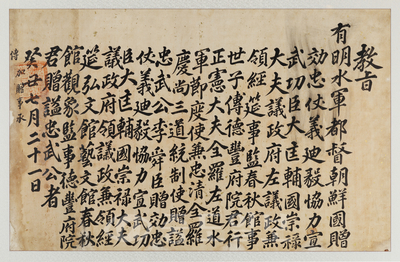 教旨
有明水軍都督朝鮮國贈
効忠仗義迪毅協力宣
武功臣大匡輔國崇祿
大夫議政府左議政兼
領經筵事監春秋館事
世子傅德豐府院君行
正憲大夫全羅左道水
軍節度使兼忠清全羅
慶尚三道統制使贈諡
忠武公李舜臣贈効忠
仗義迪毅協力宣武功
臣大匡輔國崇祿大夫
議政府領議政兼領經
筵弘文館藝文館春秋
館觀象監事德豐府院
君贈諡忠武公者
癸丑七月二十一日
加贈事承
傳